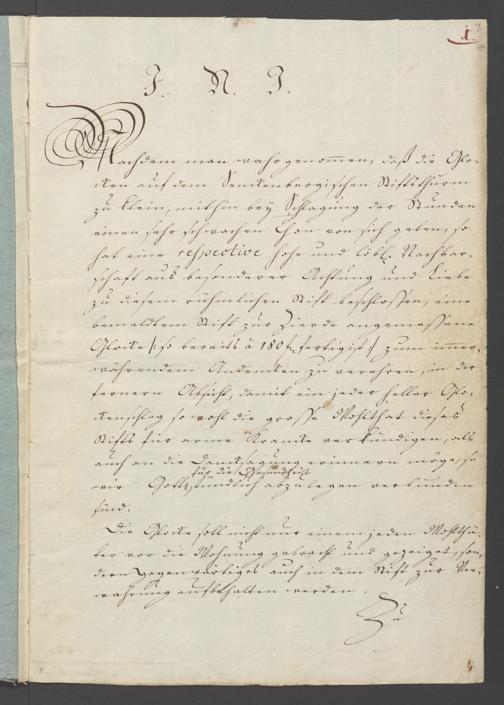 1.
J. N. J.
Nachdem man wahrgenom̄en, daß die Glo-
cken auf dem Senckenbergischen Stiftsthurm
zu klein, mithin bey Schlagung der Stunden
einen sehr schwachen Thon von sich geben, so
hat eine respective hohe und löbl. Nachbar-
schaft aus besonderer Achtung und Liebe
zu diesem rühmlichen Stift beschlossen, eine
bemeldtem Stift zur Zierde angemessene
Glocke /: so bereits à 180 fertig ist :/ zum immer-
währendem Andencken zu verehren, in der
fernern Absicht, damit ein jeder heller Glo-
ckenschlag sowohl die grosse Wohlthat dieses
Stifts für arme Krancke verkündigen, als
auch an die Dancksagung erinnern möge, so
für die Gesundheit
wir Gott stündlich abzulegen verbunden
sind.
Die Glocke soll nicht nur einem jeden Wohlthä-
ter vor die Wohnung gebracht und gezeiget, son-
dern gegenwärtiges auch in dem Stift zur Ver-
wahrung aufbehalten werden.
Zu